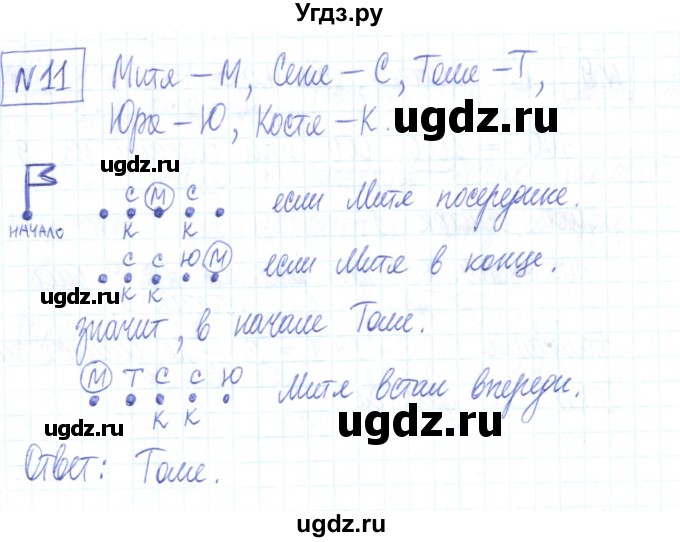 Угдз.ру
№11 Митя – М, Сеня – С, Толя – Т,
Юра – Ю, Костя – К.
ugdz.ru
ugdz.ru
С М С если Митя посередине.
НАЧАЛО К К
ugdz.ru
С С Ю М если Митя в конце.
К К
ugdz.ru
значит, в начале Толя.
М Т С С Ю Митя встал впереди.
К К
ugdz.ru
ugdz.ru
Ответ: Толя.
ugdz.ru